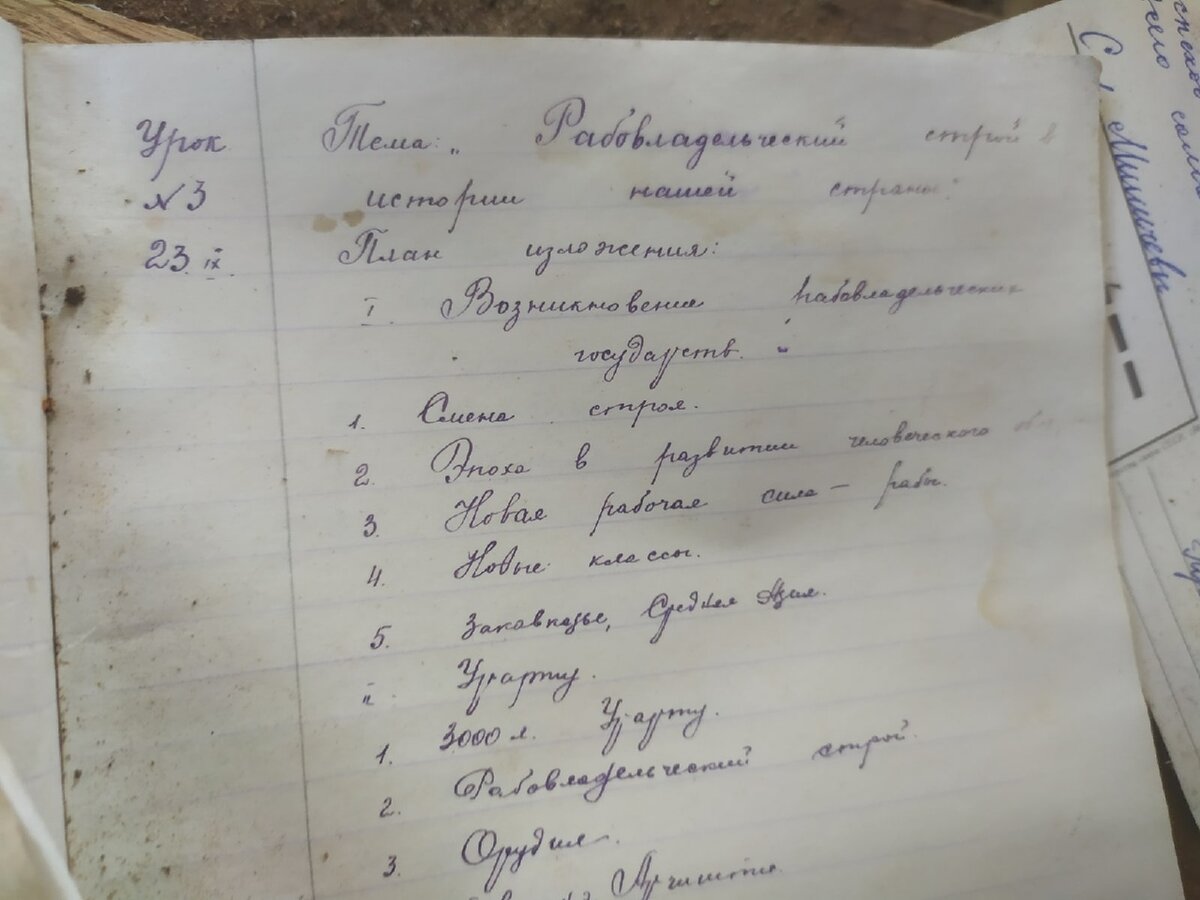 Урок
№3
23 IX
Тема: „ Рабовладельческий строй в
истории нашей страны."
План изложения:
I. Возникновение рабовладельческих
государств. "
1. Смена строя.
2. Эпоха в развитии человеческого
3. Новая рабочая сила – рабы.
4. Новые классы.
5. Закавказье, Средняя Азия.
II. Урарту.
1. 3000 л. Урарту.
2. Рабовладельческий строй.
3. Орудия.
Аргишти
село